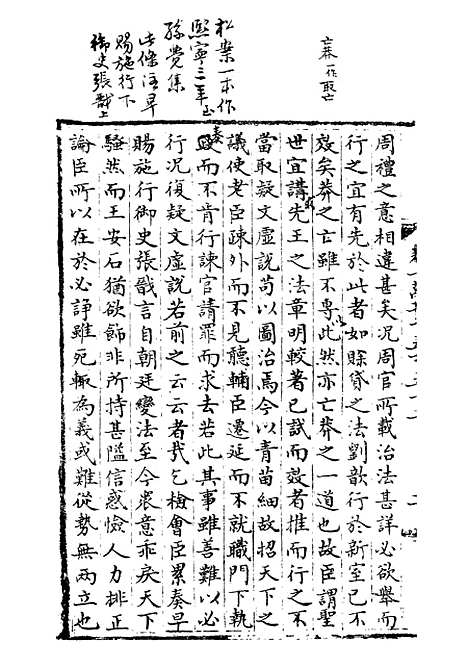 亡莽一作取亡
松案一本作
熙寧三年上
孫覺集
此條注早
賜施行下
御史張戩上
周禮之意相違甚矣况周官所載治法甚詳必欲舉而
行之宜有先於此者如賒貸之法劉歆行於新室已不
效矣莽之亡雖不專此然亦亡莽之一道也故臣謂聖
世宜講先王之法章明較著已試而效者推而行之不
當取疑文虛說苟以圖治焉今以青苗細故招天下之
議使老臣疎外而不見聽輔臣遷延而不就職門下執
而不肯行諫官請罪而求去若此其事雖善難以必
行况復疑文虛說若前之云云者哉乞檢會臣累奏早
賜施行御史張戩言自朝廷變法至今衆意乖戾天下
騷然而王安石猶欲飾非所持甚隘信惑憸人力排正
論臣所以在於必諍雖死輙為義或難從勢無兩立也